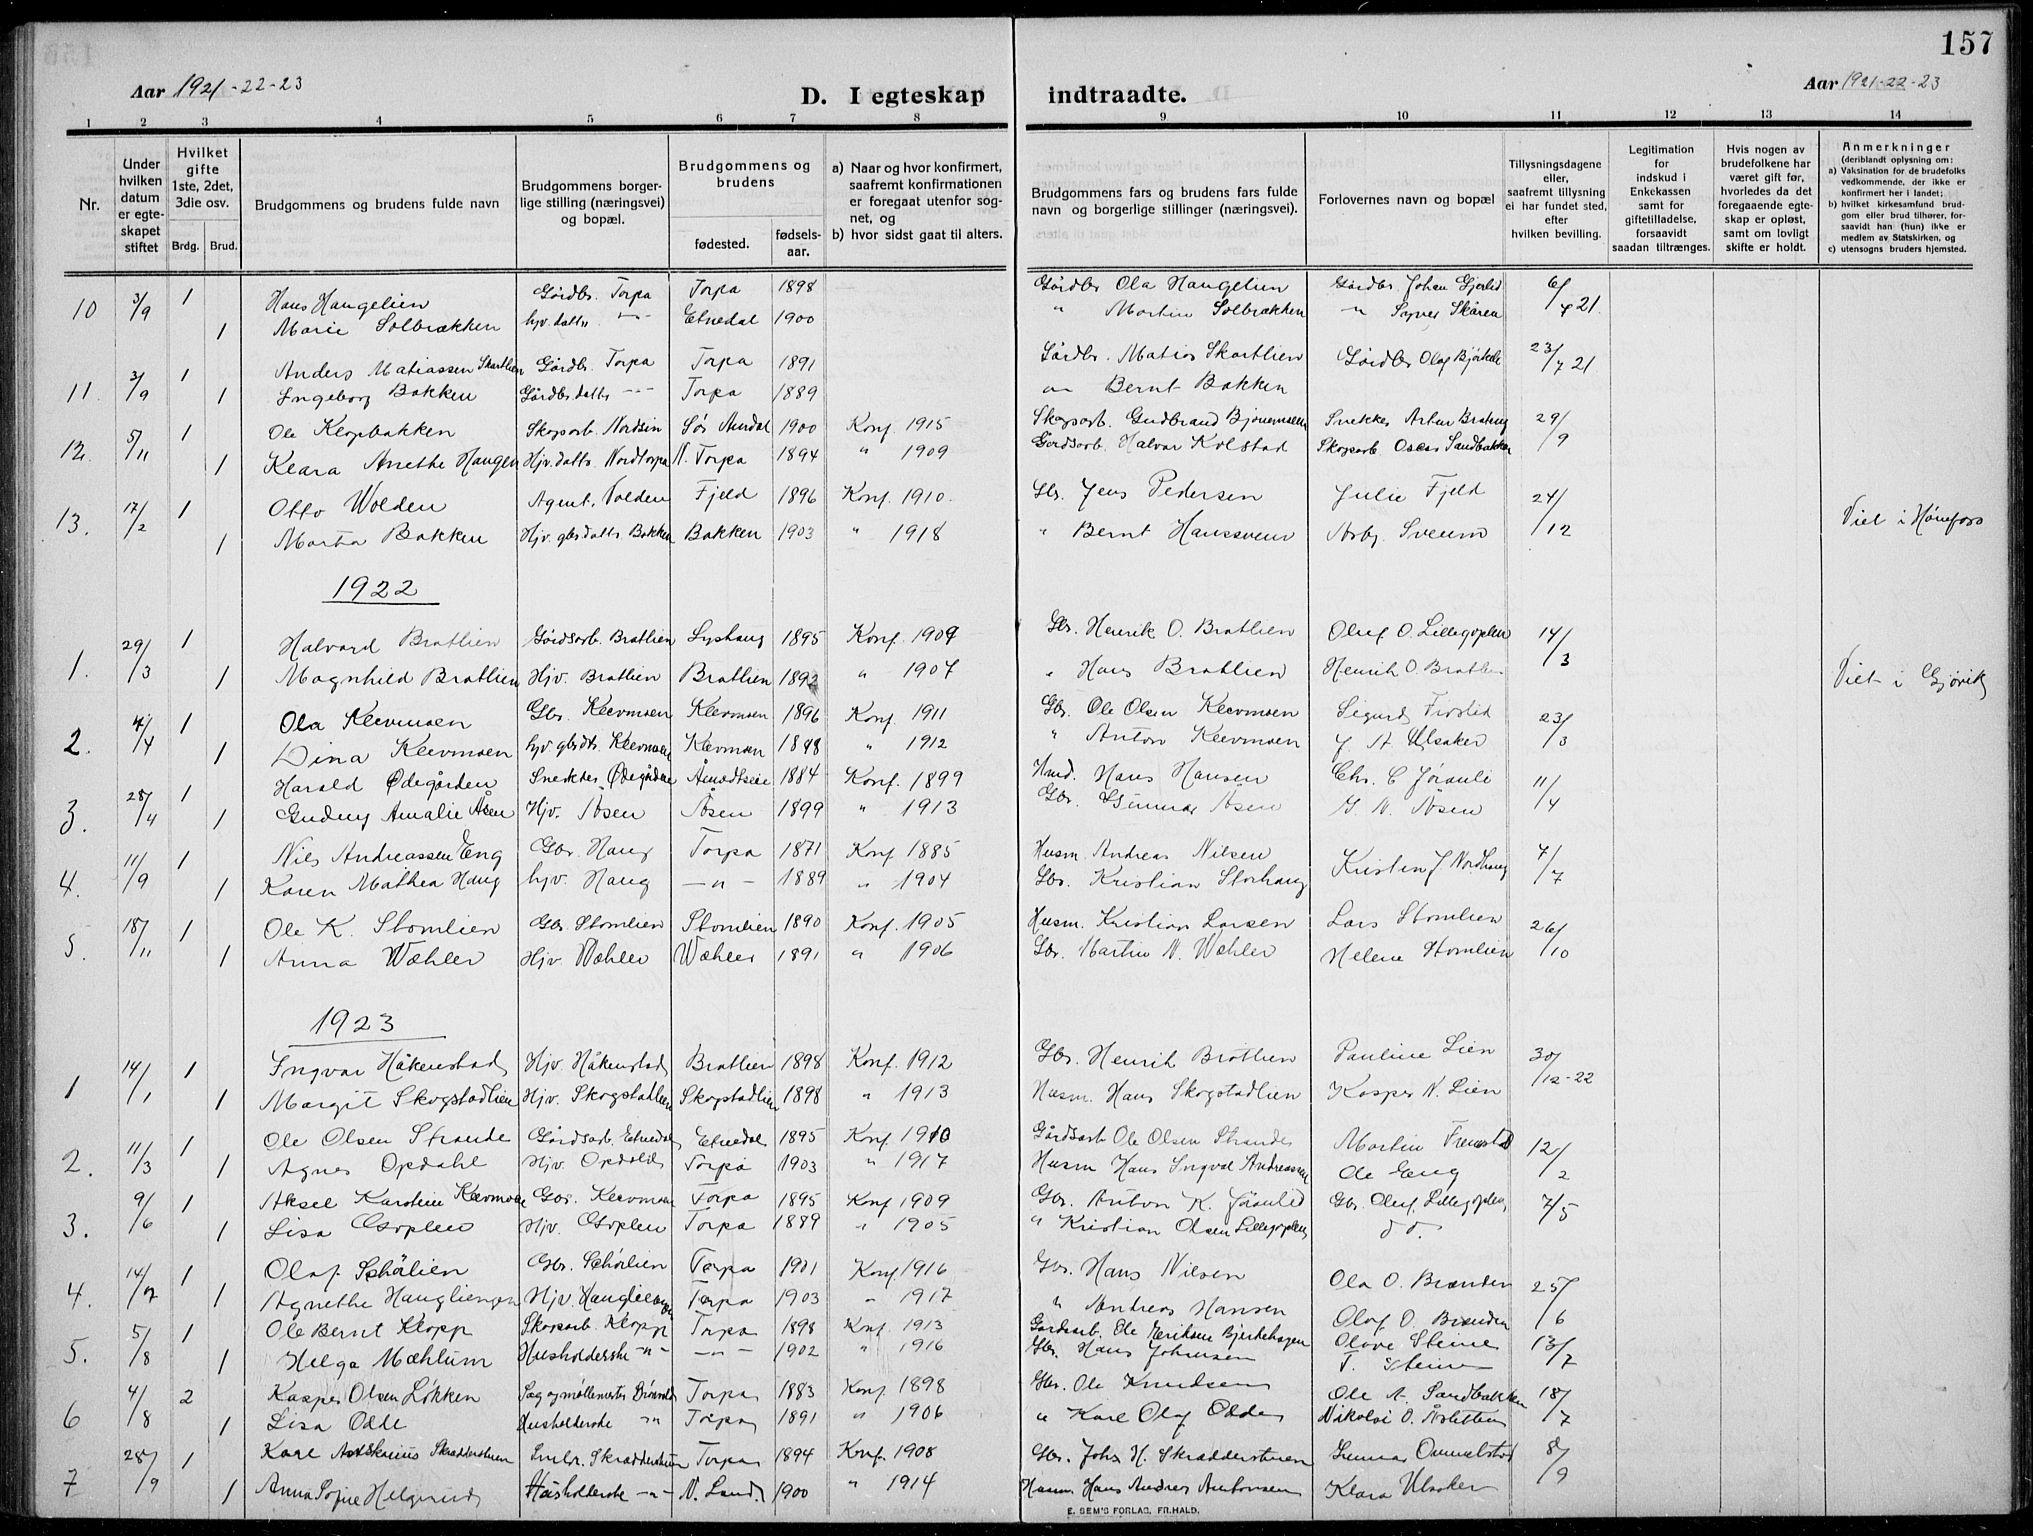 157
Aar 1921-22-23
D. I egteskap indtraadte.
Aar 1921-22-23
1 2 3 4 5 6 7 8 9 10 11 12 13 14
Nr.
Under hvilken datum er egteskapet stiftet
Hvilket gifte 1ste, 2det, 3die osv.
Brdg. Brud.
Brudgommens og brudens fulde navn
Brudgommens borgerlige stilling (næringsvei) og bopæl.
Brudgommens og brudens
fødested.
fødselsaar.
a) Naar og hvor konfirmert, saafremt konfirmationen er foregaat utenfor sognet, og
b) hvor sidst gaat til alters.
Brudgommens fars og brudens fars fulde navn og borgerlige stillinger (næringsvei).
Forlovernes navn og bopæl
Tillysningsdagene eller, saafremt tillysning ei har fundet sted, efter hvilken bevilling.
Legitimation for indskud i Enkekassen samt for giftetilladelse, forsaavidt saadan tiltrænges.
Hvis nogen av brudefolkene har været gift før, hvorledes da det foregaaende egteskap er opløst, samt om lovligt skifte er holdt.
Anmerkninger
(deriblandt oplysning om:
a) Vaksination for de brudefolks vedkommende, der ikke er konfirmert her i landet;
b) hvilket kirkesamfund brudgom eller brud tilhører, forsaavidt han (hun) ikke er medlem av Statskirken, og
c) utensogns bruders hjemsted.
10 3/9 1 Hans Haugelien Gårdbr. Torpa Torpa 1898 Gårdbr Ola Haugelien Gårdbr. Johan Gjerlid 6/7 21.
1 Marie Solbrækken hjv. datter -"- Etnedal 1900 " Martin Solbrækken " Skåren
11. 3/9 1 Anders Matiassen Skartlien Gårdbr. Torpa Torpa 1891 Gårdbr. Matias Skartlien Gårdbr Olaf 23/7 21
1 Ingeborg Bakken Gårdbr datter -"- Torpa 1889 " Bernt Bakken
12. 5/11 1 Ole Klopbakken Skogsarb. Nordsin Sør Aurdal 1900 Konf. 1915 Skogsarb. Gudbrand Snekker 29/9
1 Klara Anethe Haugen Hjv. datter Nordtorpa N. Torpa 1894 " 1909 Gårdsarb. Halvor Kolstad Skogsarb Oscar Sandbakken
13. 17/2 1 Otto Wolden Agent. Volden Fjeld 1896 Konf. 1910. Gbr. Jens Pedersen Julie Fjeld 24/12
1 Marta Bakken Hjv. gbrdatter Bakken Bakken 1903 " 1918 " Bernt Hanssveen Asbj. Sveum Viet i Hønefoss
1922
1. 29/3 1 Halvard Bratlien Gårdsarb. Bratlien Lyshaug 1895 Konf. 1909 Gbr. Henrik O. Bratlien Oluf O. Lillegoplen 14/3
1 Magnhild Bratlien Hjv. Bratlien Bratlien 1892 " 1907 " Hans Bratlien Henrik O. Bratlien Viet i Gjøvik
2. 4/4 1 Ola Klevmoen Gbr. Klevmoen Klevmoen 1896 Konf. 1911 Gbr. Ole Olsen Klevmoen Sigurd Frøslid 23/3
1 Dina Klevmoen hjv gbrdtr. Klevmoen Klevmoen 1898 " 1912 " Anton Klevmoen J. A Ulsaker
3. 28/4 1 Harald Ødegården Snekker Ødegården 1884 Konf. 1899 Hmd. Hans Hansen Chr. C Jøranli 11/4
1 Gudny Amalie Åsen Hjv. Åsen Åsen 1899 " 1913 Gbr. Gunnar Åsen G. N. Åsen
4. 11/9 1 Nils Andreassen Eng Gbr. Haug Torpa 1871 Konf 1885 Husm. Andreas Nilsen Kristen J Nordhaug 7/7
1 Karen Mathea Haug hjv. Haug -"- 1889 " 1904 Gbr. Kristian Storhaug
5. 18/11 1 Ole K. Stomlien Gbr Stomlien Stomlien 1890 Konf. 1905 Husm. Kristian Larsen Lars Stomlien 26/10
1 Anna Wæhler Hjv. Wæhler Wæhler 1891 " 1906 Gbr. Martin N. Wæhler Helene Stomlien
1923
1 14/1 1 Ingvar Håkenstad Hjv. Håkenstad Bratlien 1898 Konf. 1912 Gbr. Henrik Bratlien Pauline Lien 30/12-22
1 Margit Skogstadlien Hjv. Skogstadlien Skogstadlien 1898 " 1913 Husm. Hans Skogstadlien Kasper N. Lien
2. 11/3 1 Ole Olsen Strande Gårdsarb. Etnedal Etnedal 1895 Konf 1910 Gårdsarb Ole Olsen Strande Martin Fremstad 12/2
1 Agnes Opdahl Hjv. Opdahl Torpa 1903 " 1917 Husm Hans Ingval Andreassen Ole Eng
3. 9/6 1 Aksel Karsten Klevmoen Gbr. Klevmoen Torpa 1895 Konf 1909 Gbr. Anton K. Jøranlid Gbr. Oluf Lillegoplen 7/5
1 Lisa Goplen Hjv. Goplen Torpa 1889 " 1905 " Kristian Olsen Lillegoplen do.
4. 14/7 1 Olaf Schålien Gbr. Schålien Torpa 1901 Konf 1916 Gbr. Hans Nilsen Ola O. Brænden 25/6
1 Agnethe Haugliengen Hjv. Haugliengen Torpa 1903 " 1917 " Andreas Hansen Olaf O. Brænden
5. 5/8 1 Ole Bernt Klopp Skogsarb. Klopp Torpa 1898 Konf. 1913 Gårdsarb. Ole Eriksen Bjerkehagen Olave Steine 13/7
1 Helga Mæhlum Husholderske -"- -"- 1902 " 1916 Gbr. Hans Johnsen T. Steine
6 4/8 2 Kasper Olsen Løkken Sag og møllemester Torpa 1883 Konf 1898 Gbr. Ole Knudsen Ole A. Sandbakken 18/7
1 Lisa Odde Husholderske -"- Torpa 1891 " 1906 " Karl Olaf Odde Nikolai O. Åsletten
7 28/9 1 Karl Skrædderstuen Smbr. Skrædderstuen Torpa 1894 Konf. 1908 Gbr. Johs H. Skrædderstuen Gunnar Ommelstad 8/9
1 Anna Sofie Helgerud Husholderske -"- N. Land. 1900 " 1914 Husm Hans Andreas Antonsen Klara Ulsaker
E. SEM'S FORLAG, FR.HALD.